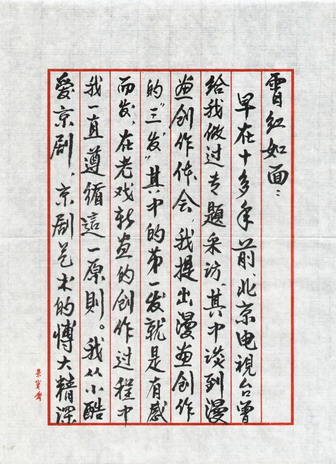 雪红如面：
早在十多年前，北京电視台曾
给我做过专题采访，其中谈到漫
画创作体会，我提出漫画创作
的“三发”，其中的第一发就是有感
而发，在老戏新画的创作过程中
我一直遵循這一原則。我从小酷
爱京剧，京剧艺术的博大精深